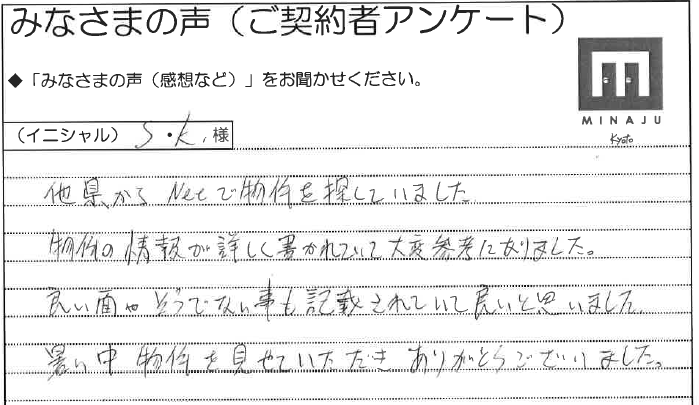 みなさまの声（ご契約者アンケート）
◆「みなさまの声（感想など）」をお聞かせください。
MINAJU
Kyoto
（イニシャル） S・K, 様
他県から Netで物件を探していました
物件の情報が詳しく書かれていて大変参考になりました。
良い面やそうでない事も記載されていて良いと思いました
暑い中 物件を見せていただき ありがとうございました。